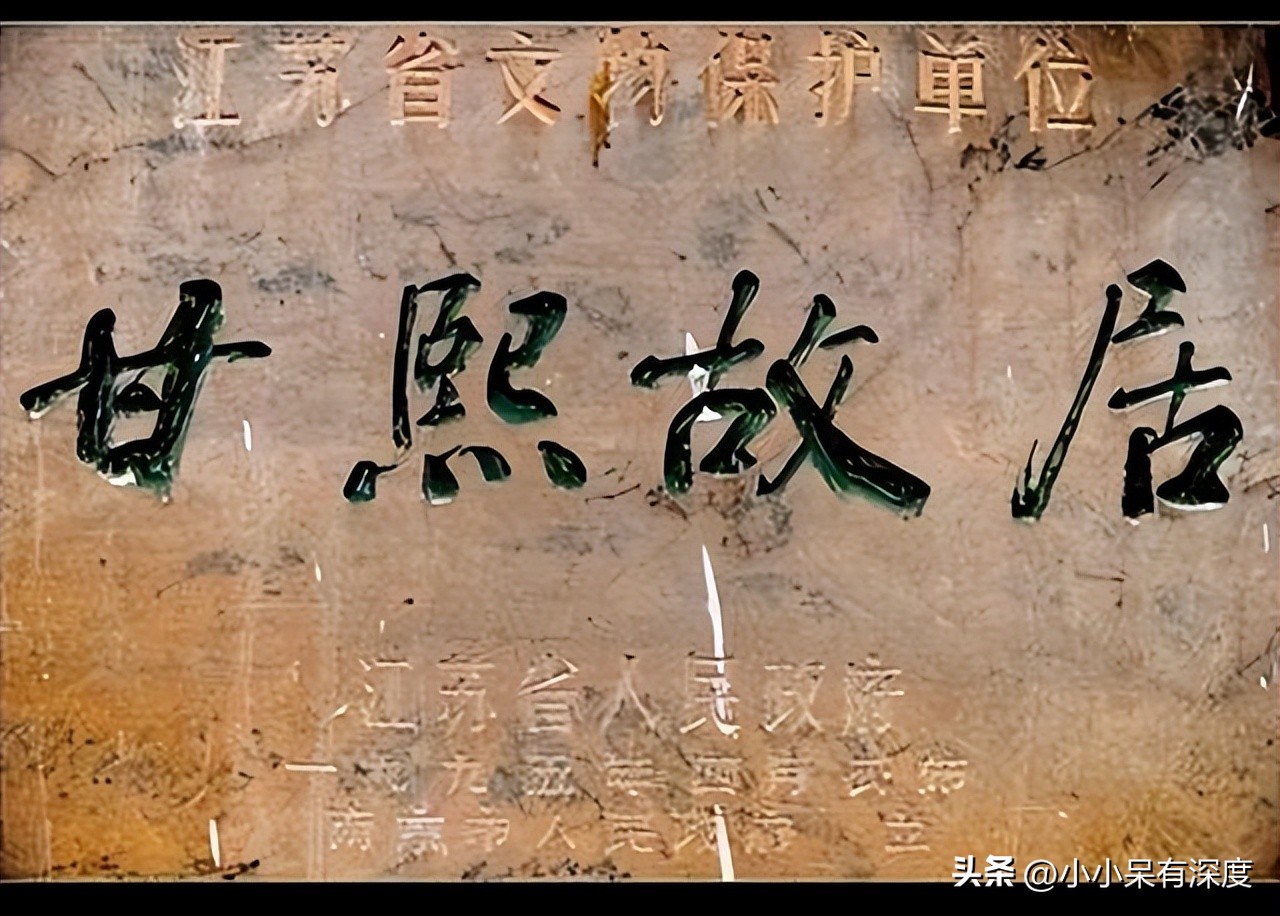 江苏省文物保护单位
甘熙故居
江苏省人民政府
一九九五年四月 公布
南京市人民政府 立
头条 @小小呆有深度